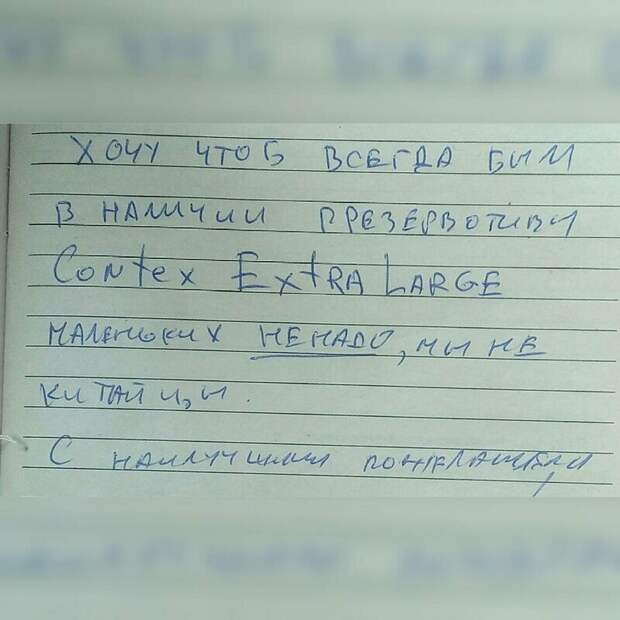 ХОЧУ ЧТОБ ВСЕГДА БЫЛ
В НАЛИЧИИ ПРЕЗЕРВОТИВЫ
Contex Extra Large
МАЛЕНЬКИХ НЕНАДО, МЫ НЕ
КИТАЙЦЫ.
С НАИЛУЧШИМИ ПОЖЕЛАНИЕМ